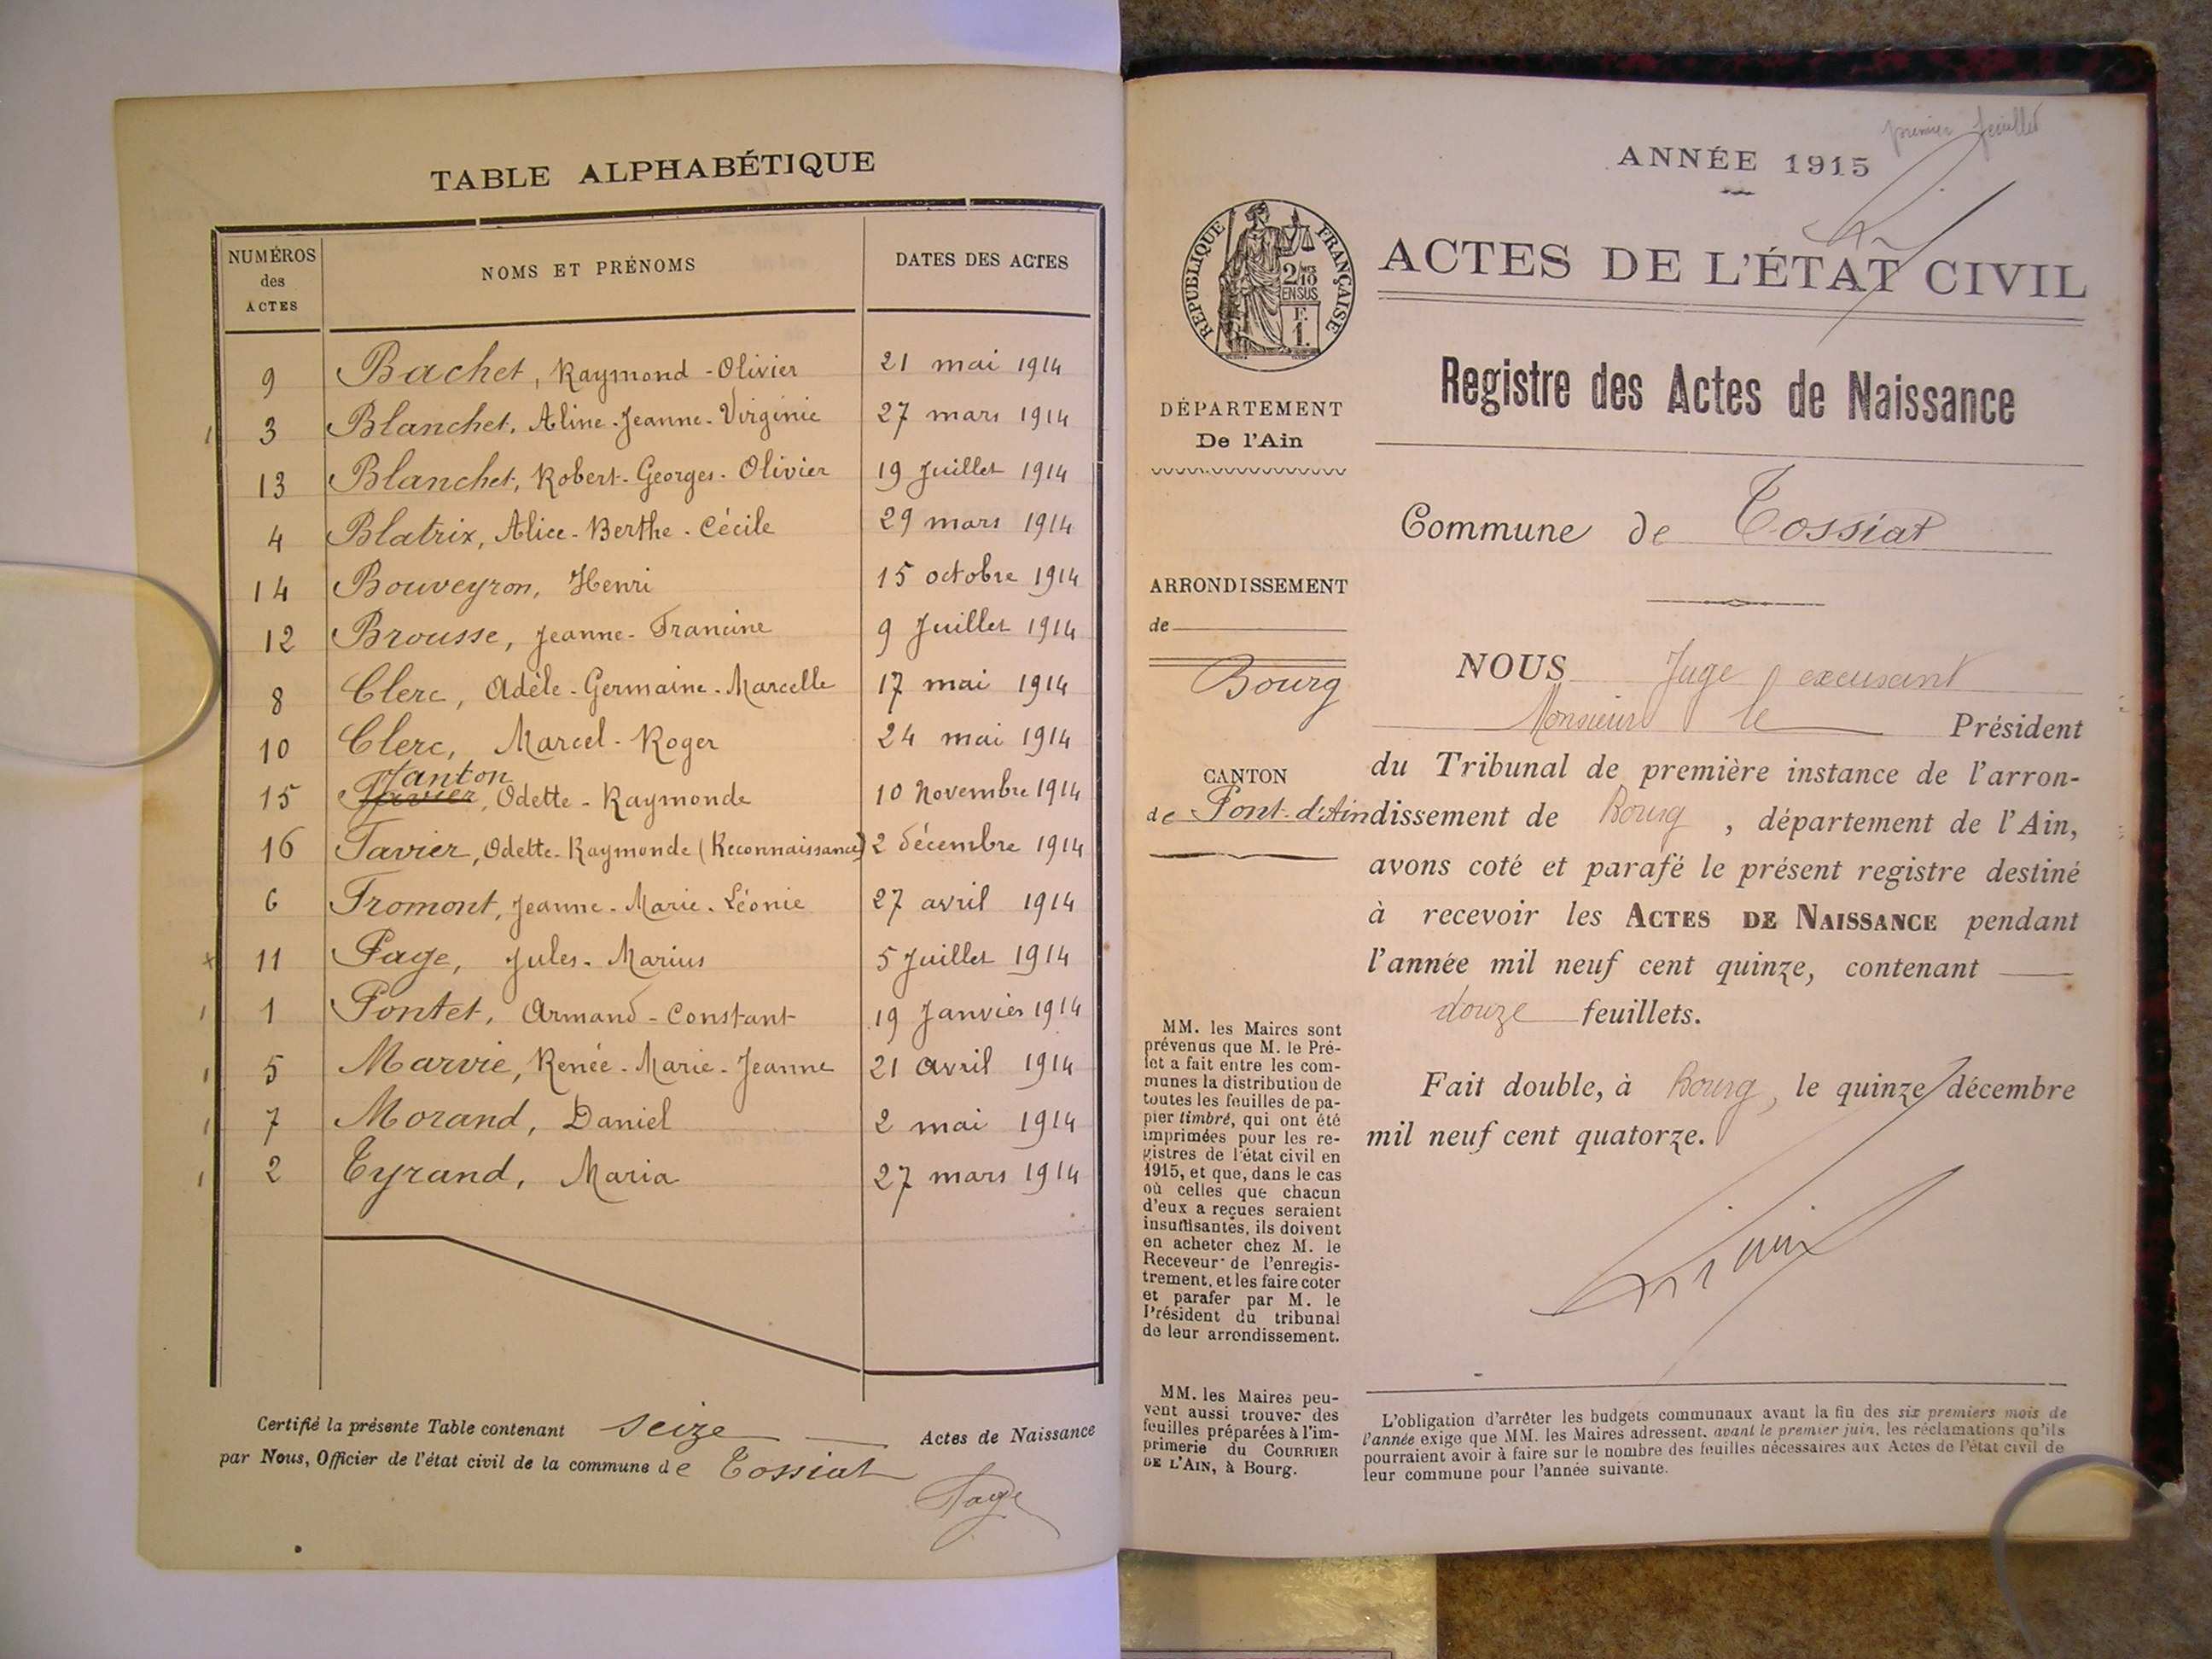 TABLE ALPHABÉTIQUE
NUMÉROS des ACTES
NOMS ET PRÉNOMS
DATES DES ACTES
9 Bachet, Raymond-Olivier 21 mai 1914
3 Blanchet, Aline-Jeanne-Virginie 27 mars 1914
13 Blanchet, Robert-Georges-Olivier 19 Juillet 1914
4 Blatrix, Alice-Berthe-Cécile 29 mars 1914
14 Bouveyron, Henri 15 octobre 1914
12 Brousse, Jeanne-Francine 9 Juillet 1914
8 Clerc, Adèle-Germaine-Marcelle 17 mai 1914
10 Clerc, Marcel-Roger 24 mai 1914
Janton
15 Favier, Odette-Raymonde 10 Novembre 1914
16 Favier, Odette-Raymonde (Reconnaissance) 2 décembre 1914
6 Fromont, Jeanne-Marie-Léonie 27 avril 1914
11 Page, Jules-Marius 5 Juillet 1914
1 Pontet, Armand-Constant 19 Janvier 1914
5 Marvie, Renée-Marie-Jeanne 21 avril 1914
7 Morand, Daniel 2 mai 1914
2 Tyrand, Maria 27 mars 1914
Certifié la présente Table contenant seize Actes de Naissance
par Nous, Officier de l'état civil de la commune de Tossiat
Page
premier feuillet
ANNÉE 1915
RÉPUBLIQUE FRANÇAISE
2/10
EN SUS
F.
1.
ACTES DE L'ÉTAT CIVIL
Registre des Actes de Naissance
DÉPARTEMENT
De l'Ain
Commune de Tossiat
ARRONDISSEMENT
de
Bourg
CANTON
de Pont-d'Ain
NOUS Juge excusant
Monsieur le Président
du Tribunal de première instance de l'arron-
dissement de Bourg, département de l'Ain,
avons coté et parafé le présent registre destiné
à recevoir les ACTES DE NAISSANCE pendant
l'année mil neuf cent quinze, contenant
douze feuillets.
Fait double, à Bourg, le quinze décembre
mil neuf cent quatorze.
MM. les Maires sont
prévenus que M. le Pré-
fet a fait entre les com-
munes la distribution de
toutes les feuilles de pa-
pier timbré, qui ont été
imprimées pour les re-
gistres de l'état civil en
1915, et que, dans le cas
où celles que chacun
d'eux a reçues seraient
insuffisantes, ils doivent
en acheter chez M. le
Receveur de l'enregis-
trement, et les faire coter
et parafer par M. le
Président du tribunal
de leur arrondissement.
MM. les Maires peu-
vent aussi trouver des
feuilles préparées à l'im-
primerie du COURRIER
DE L'AIN, à Bourg.
L'obligation d'arrêter les budgets communaux avant la fin des six premiers mois de
l'année exige que MM. les Maires adressent, avant le premier juin, les réclamations qu'ils
pourraient avoir à faire sur le nombre des feuilles nécessaires aux Actes de l'état civil de
leur commune pour l'année suivante.